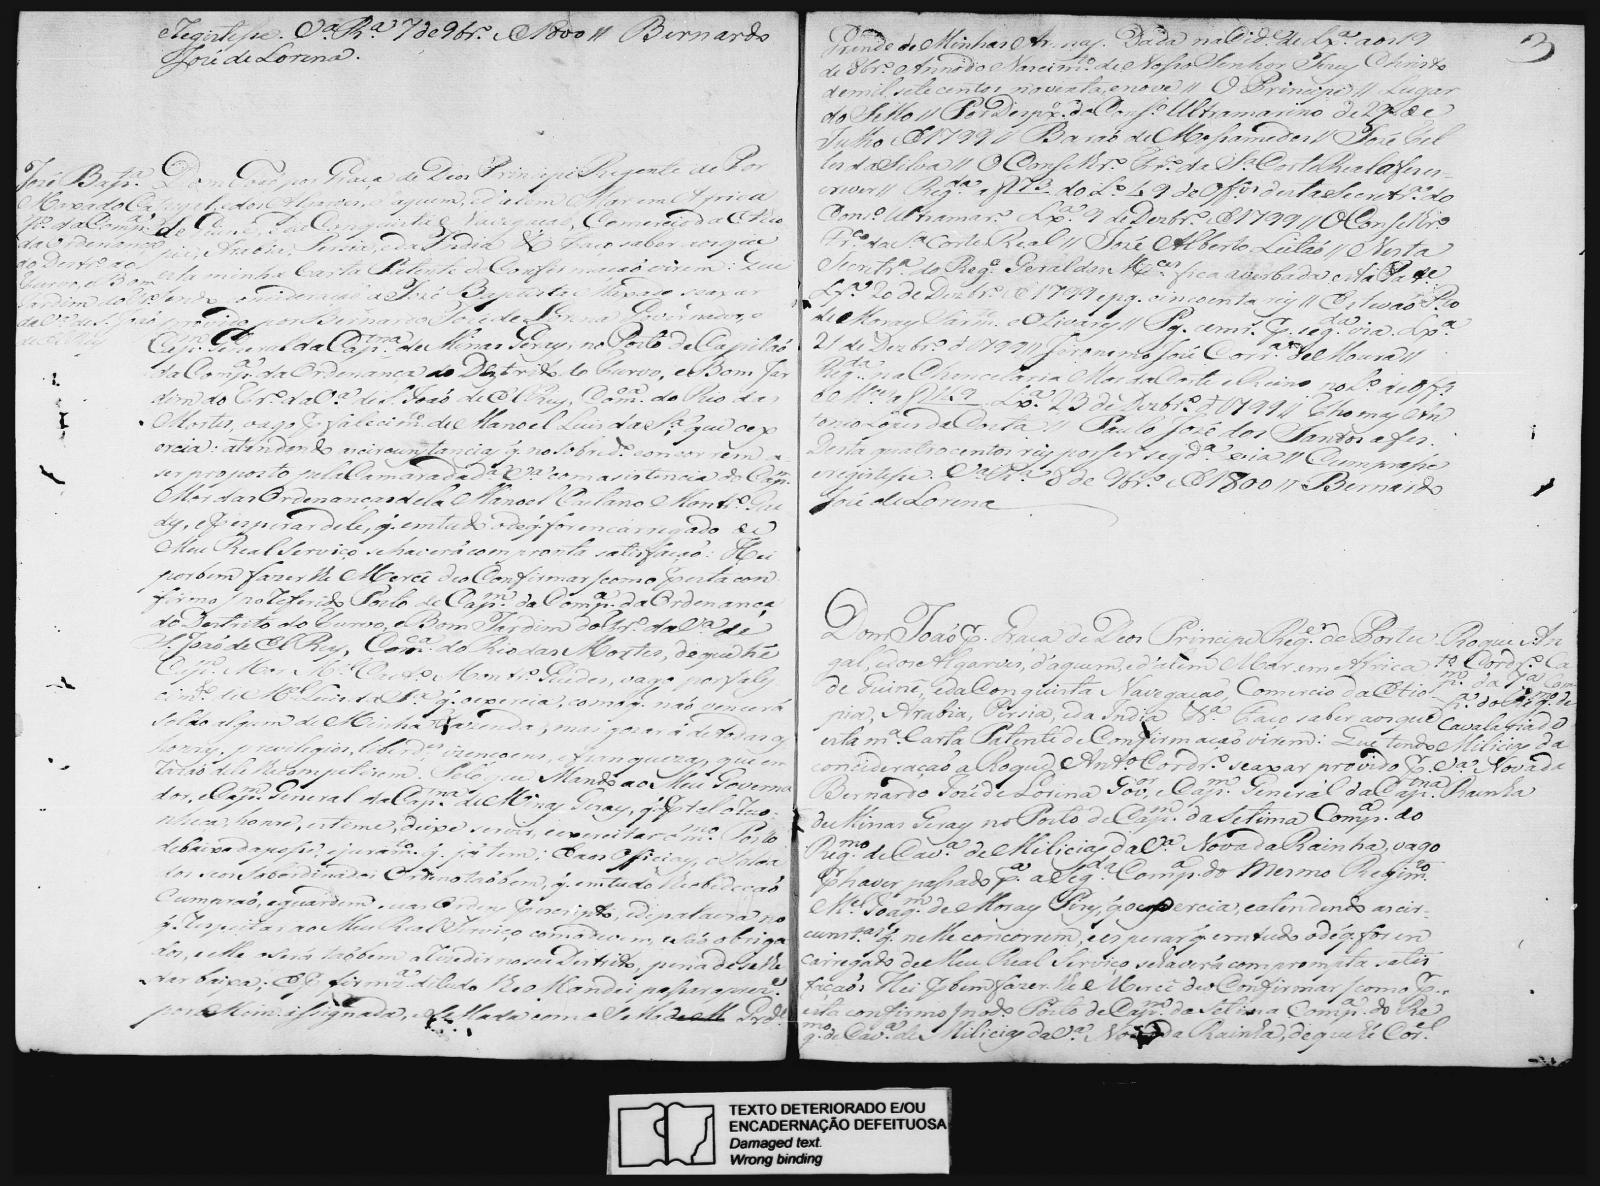 registese. Va. Ra. 7 de 9br.º de 1800 // Bernardo
José de Lorena.
José Bapta.
Maxado Ca
pm. da Compa.
da Ordenança
do Destro. do
Turvo, e Bom
Jardim do Tro.
da Va. de S. João
de El Rey
Dom João por Graça de Deos Principe Regente de Por
tugal, e dos Algarves, d'aquem, e d'alem Mar em Africa
de Guiné, e da Conquista, Navegação, Comercio da Ethio
pia, Arabia, Persia, e da India &a. Faço saber aos que
esta minha Carta Patente de Confirmação virem: Que
tendo consideração a José Baptista Maxado se axar
provido por Bernardo José de Lorena Governador, e
Capm. General da Capnia. de Minas Geraes, no Posto de Capitão
da Compa. da Ordenança do Destrito do Turvo, e Bom Jar
dim do Tro. da Va. de S. João de El Rey, Comca. do Rio das
Mortes, vago p. falecimto. de Manoel Luis da Sa. que o ex
ercia: atendendo as circunstancias q. no sobredo. concorrem a
ser proposto pela Camara da da. Va. com asistencia do Capm.
Mor das Ordenanças dela Manoel Caetano Montro. Gue
des, e esperar dele, q. em tudo o de q. for encarregado de
Meu Real Serviço se haverá com pronta satisfação: Hei
por bem fazer lhe Mercê de o Confirmar (como p. esta con
firmo) no referido Posto de Capm. da Compa. da Ordenança
do Destrito do Turvo, e Bom Jardim do Tro. da Va. de
S. João de El Rey, Comca. do Rio das Mortes, de que hé
Capm. Mor Ml. Caeto. Montro. Guedes, vago por fale
cimto. de Ml. Luis da Sa. q. o exercia, com o q. não vencerá
soldo algum de Minha Fazenda, mas gozará de todas as
honras, privilegios, liberdes. izençoens, e franquezas, que em
razão dele lhe competirem. Pelo que Mando ao Meu Governa
dor, e Capm. General da Capnia. de Minas Geraes, q. p. tal o reco
nheça, honre, estime, deixe servir, e exercitar o mmo. Posto
debaixo da posse, e juramto. q. já tem; E aos Officiaes, e Solda
dos seus Subordinados Ordeno tãobem, q. em tudo lhe obedeção
cumprão, e guardem suas Ordens p. escripto, e de palavra no
q. respeitar ao Meu Real Serviço como devem, e são obriga
dos, e elle será tãobem a rezedir no seu Destrito, pena de se lhe
dar baixa; E p. firmza. de tudo lhe Mandei passar a prezte.
por Mim assignada, e sellada com o Sello Grde.
3
Grende de Minhas Armas. Dada na Cide. de Lxa. aos 19
de 8bro. Anno do Nascimto. de Nosso Senhor Jesus Christo
de mil sete centos noventa, e nove // O Principe // Lugar
do Sello // Por Despo. do Conso. Ultramarino de 27 de
Julho de 1799 // Barão de Mossamedes // José Tel
les da Silva // O Conselhro. Fco. da Sa. Corte Real o fes es
crever // Regda. a f 173 do Lo. 49 de Offos. desta Secretra. do
Conso. Ultramaro. Lxa. 9 de Dezbro. de 1799 // O Conselhro.
Fco. da Sa. Corte Real // José Alberto Leitão // Nesta
Secretra. do Rego. Geral das Mces. fica averbada esta Pate.
Lxa. 20 de Dezbro. de 1799 e pg. cincoenta reis // Estevão Pto.
de Moraes Sarmto. e Olivares // Pg. cem rs. p. segda. via Lxa.
21 de Dezbro. de 1799 // Jeronimo José Corra. de Moura //
Regda. na Chancelaria Mor da Corte e Reino no Lo. de Offos.
e Mces. a f 2. Lxa. 23 de Dezbro. de 1799 // Thomas An
tonio Lopes da Costa // Paulo José dos Santos a fes.
Desta quatrocentos reis por ser segda. via // Cumprase
e registese. Va. Ra. 8 de 9bro. de 1800 // Bernardo
José de Lorena
Dom João p. Graça de Deos Principe Rege. de Portu
gal, e dos Algarves, d'aquem, e d'além Mar, em Africa
de Guiné, e da Conquista Navegação, Comercio da Etio
pia, Arabia, Persia, e da India &a. Faço saber aos que
esta ma. Carta Patente de Confirmação virem: Que tendo
concideração a Roque Anto. Cordro. se axar provido p.
Bernardo José de Lorena Gor. e Capm. General da Capnia.
de Minas Geraes no Posto de Capm. da Setima Compa. do
Regmo. de Cava. de Milicias da Va. Nova da Rainha, vago
p. haver passado pa. a Segda. Compa. do Mesmo Regimto.
Ml. Joaqm. de Moraes Pires, q. o exercia, e atendendo as cir
cunstas. q. nelle concorrem, e esperar q. em tudo o de q. for en
carregado de Meu Real Serviço se haverá com prompta satis
fação: Hei p. bem fazer lhe Mercê de o Confirmar (como p.
esta confirmo) no do. Posto de Capm. da Setima Compa. do Re
gmo. de Cava. de Milicias da Va. Nova da Rainha, de que hé Corel.
Roque An
to. Cordro. Ca
pm. da 7a. Com
pa. do Regmo. de
Cavalaria de
Milicias da
Va. Nova da
Rainha
TEXTO DETERIORADO E/OU
ENCADERNAÇÃO DEFEITUOSA
Damaged text.
Wrong binding